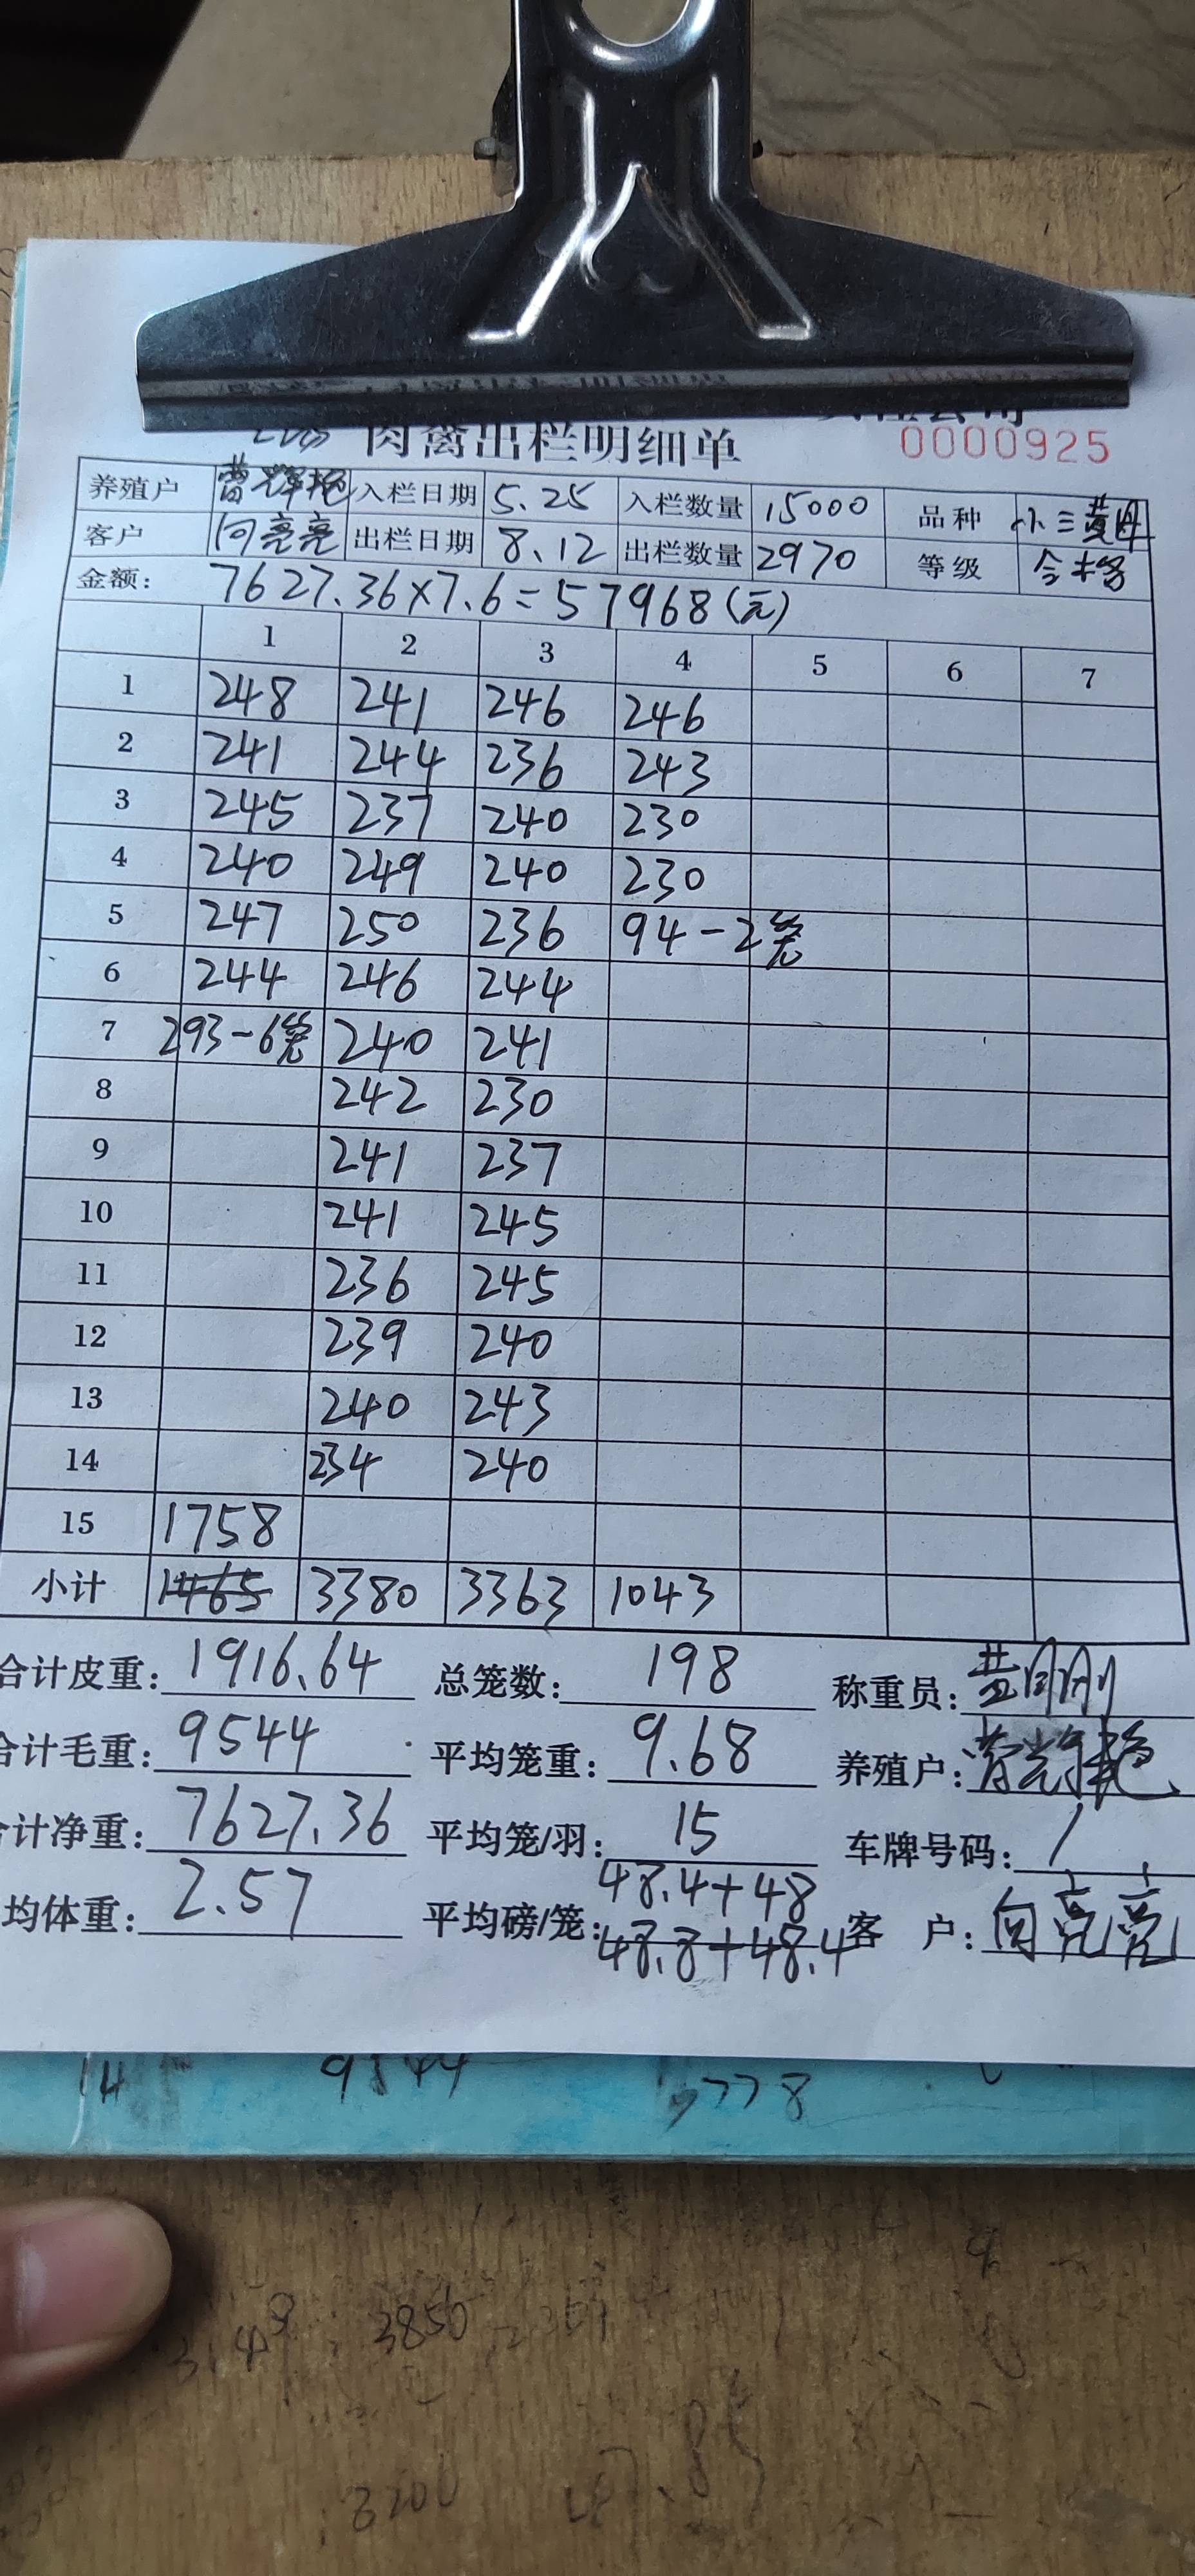 肉禽出栏明细单 0000925
养殖户 曹辉艳 入栏日期 5.25 入栏数量 15000 品种 小三黄母
客户 向亮亮 出栏日期 8.12 出栏数量 2970 等级 合格
金额: 7627.36×7.6=57968(元)
1 2 3 4 5 6 7
1 248 241 246 246
2 241 244 236 243
3 245 237 240 230
4 240 249 240 230
5 247 250 236 94-2笼
6 244 246 244
7 293-6笼 240 241
8 242 230
9 241 237
10 241 245
11 236 245
12 239 240
13 240 243
14 234 240
15 1758
小计 1465 3380 3363 1043
合计皮重: 1916.64 总笼数: 198 称重员: 黄刚刚
合计毛重: 9544 平均笼重: 9.68 养殖户: 曹辉艳
计净重: 7627.36 平均笼/羽: 15 车牌号码: /
均体重: 2.57 平均磅/笼: 48.4+48 客户: 向亮亮
48.8+48.4
14 9544 7778
3850
3200